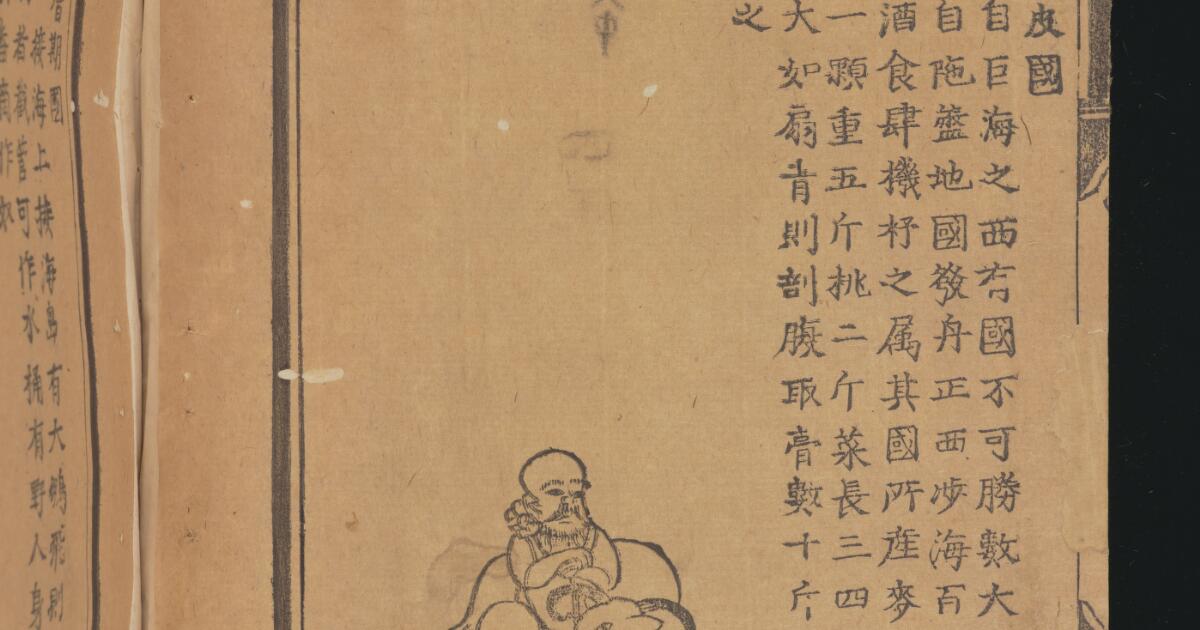 皮國
自巨海之西有國不可勝數大
自陁盤地國發舟正西涉海百
酒食肆機杼之属其國所產麥
一顆重五斤桃二斤菜長三四
大如扇則剖腹取膏數十斤
之
層期國
接海上接海島有大鵬飛則
者截管可作水桶有野人身
番商作奴